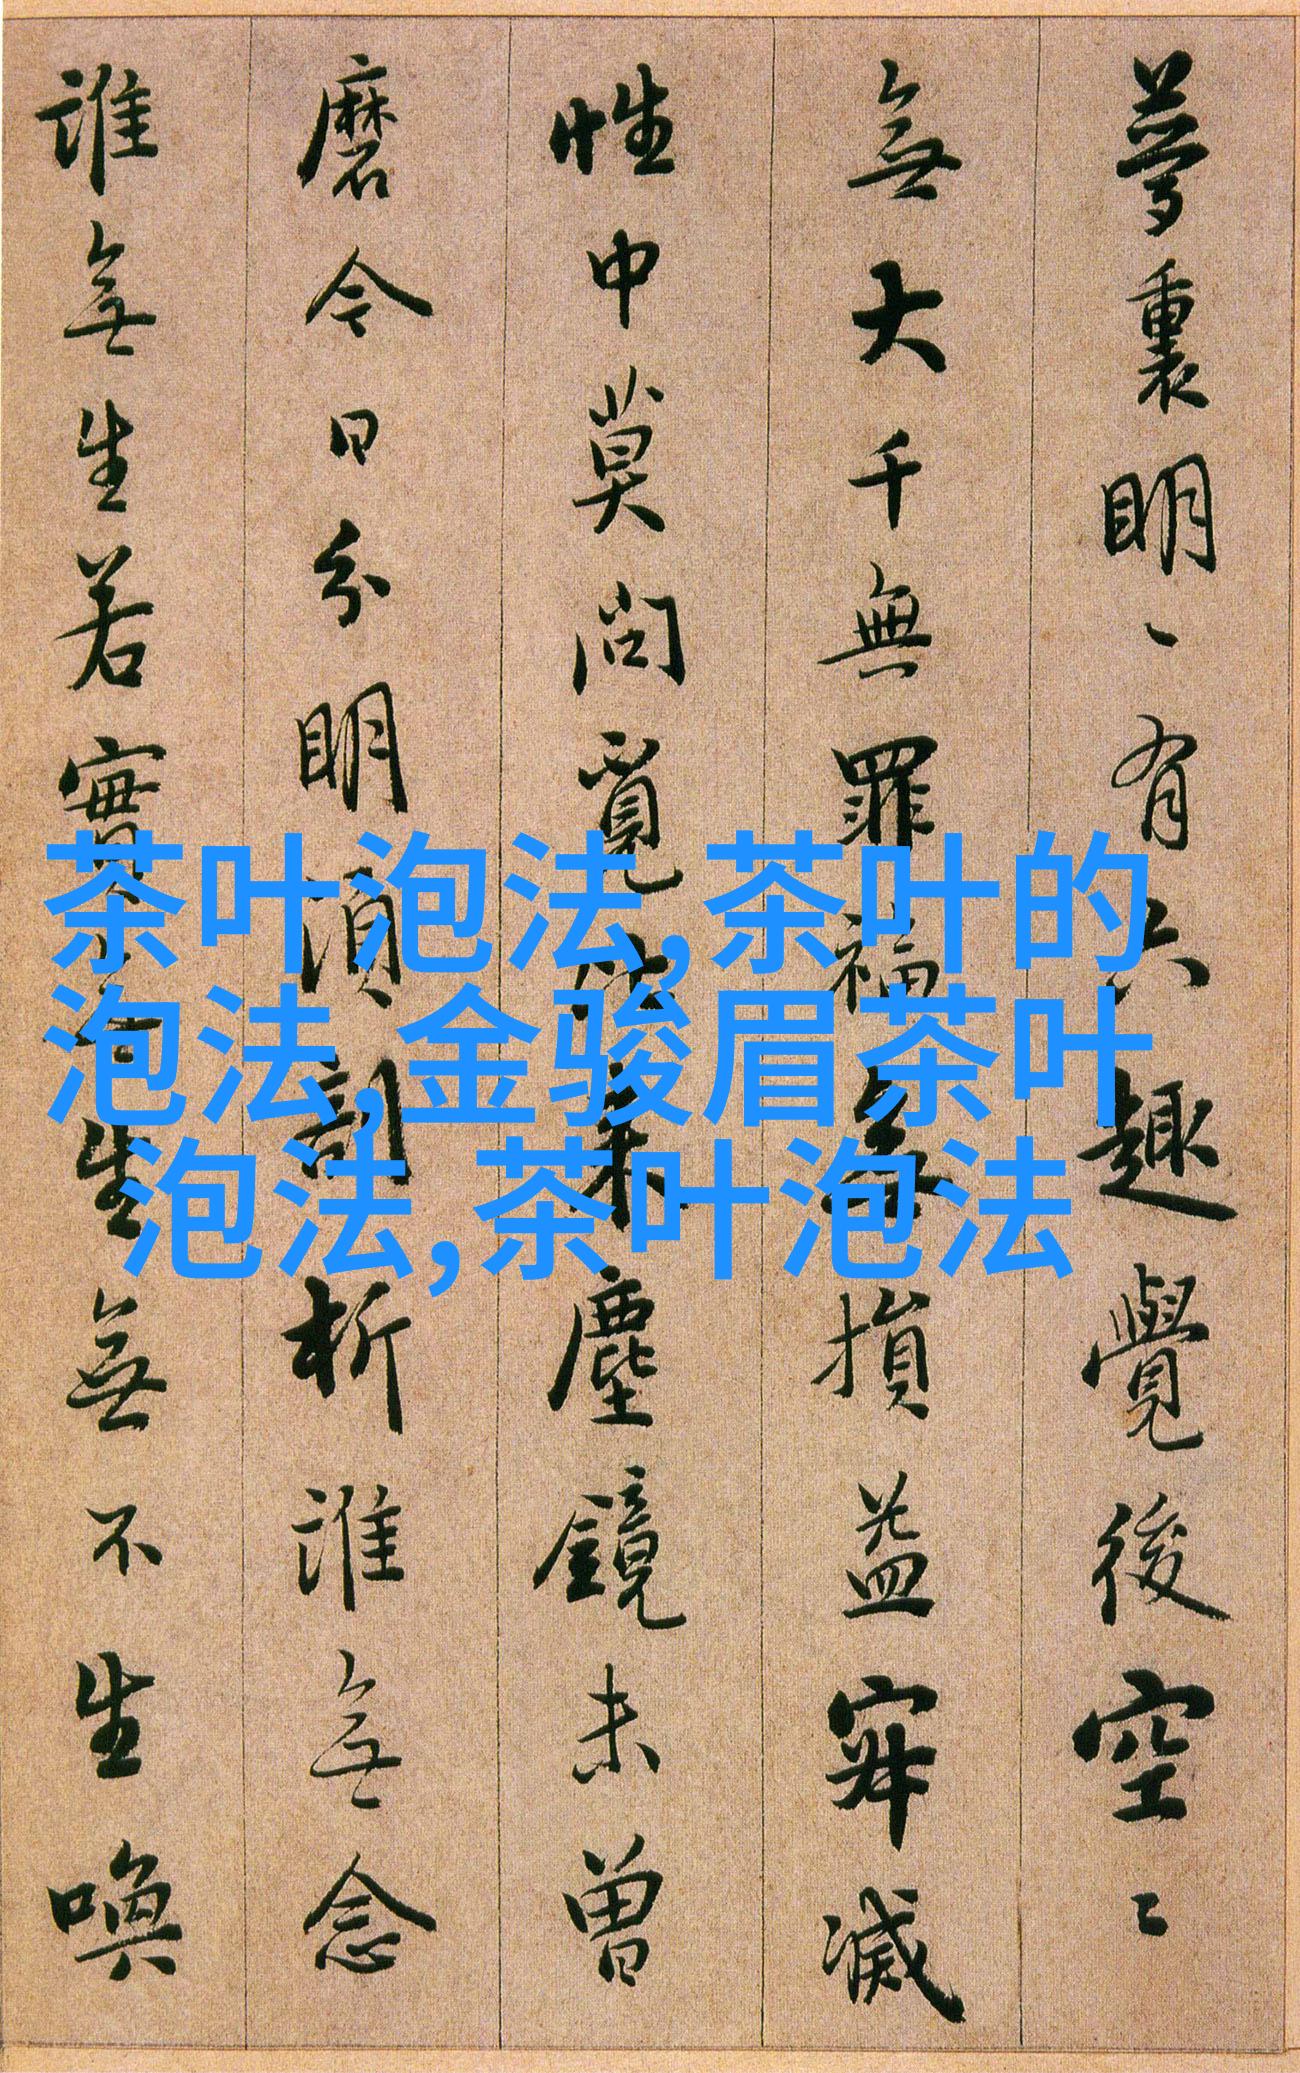 夢裏明〻有六趣覺後空〻
無大千無罪福無損益寂滅
性中莫問覓比來塵鏡未曾
磨今日分明須剖析誰無念
誰無生若實無生無不生喚
茶叶泡法,茶叶的
泡法,金骏眉茶叶
泡法,茶叶泡法